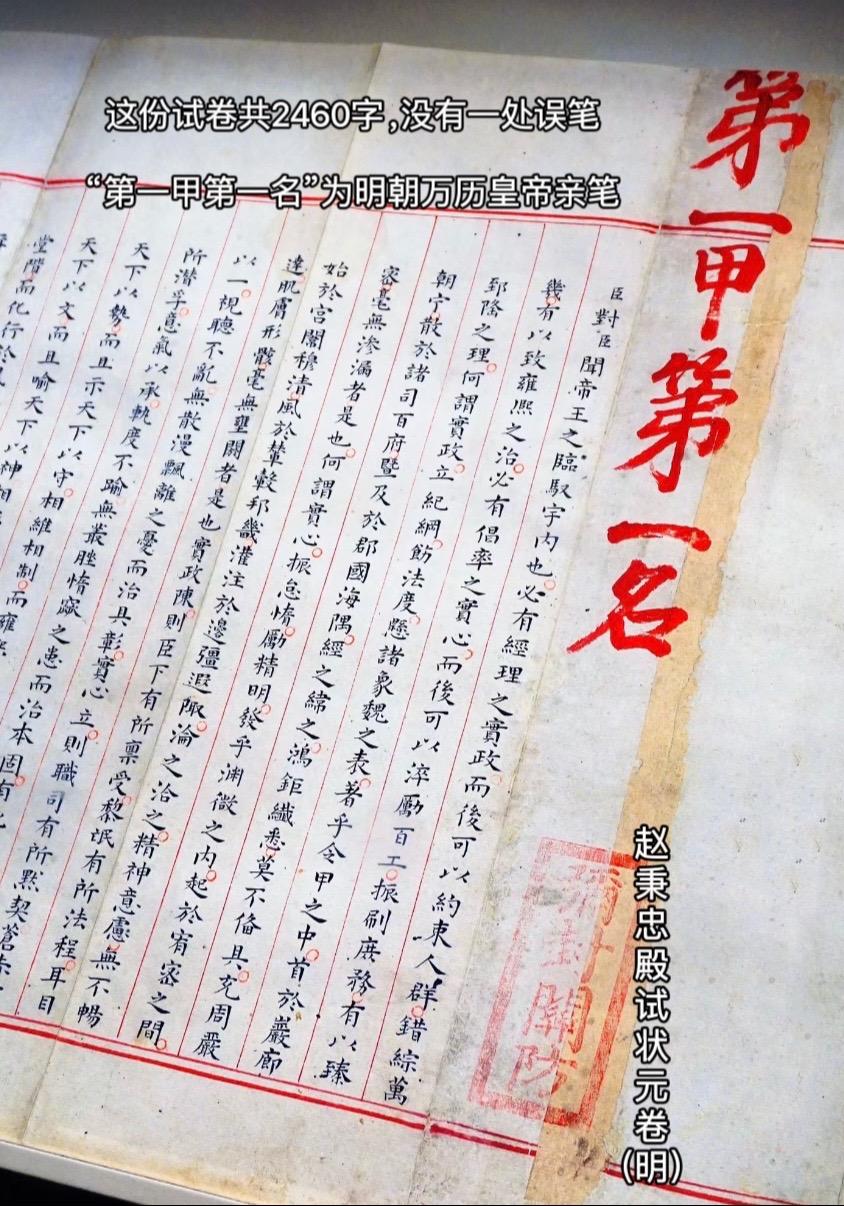 这份试卷共2460字,没有一处误笔
“第一甲第一名”为明朝万历皇帝亲笔
第一甲第一名
臣對臣聞帝王之臨馭宇內也必有經理之實政而後可以約束人群錯綜萬
幾有以致雍熙之治必有倡率之實心而後可以淬勵百工振刷庶務有以臻
郅隆之理何謂實政立紀綱飭法度懸諸象魏之表著乎令甲之中首於巖廊
朝宁散於諸司百府暨及於郡國海隅經之緯之鴻鉅纖悉莫不俻具充周嚴
密毫無滲漏者是也何謂實心振怠惰勵精明發乎淵微之內起於宥密之間
始於宮闈穆清風於輦轂邦畿灌注於邊疆遐陬淪之洽之精神意慮無不暢
達肌膚形骸毫無壅閼者是也實政陳則臣下有所稟受黎氓有所法程耳目
以一視聽不亂無散漫飄離之憂而治具彰實心立則職司有所默契蒼赤
所潛孚意氣以承軌度不踰無叢脞惰窳之患而治本固有
天下以勢而且示天下以守相維相制而雍熙
天下以文而且喻天下以神相
堂階而化行於風
彌封關防
赵秉忠殿试状元卷(明)